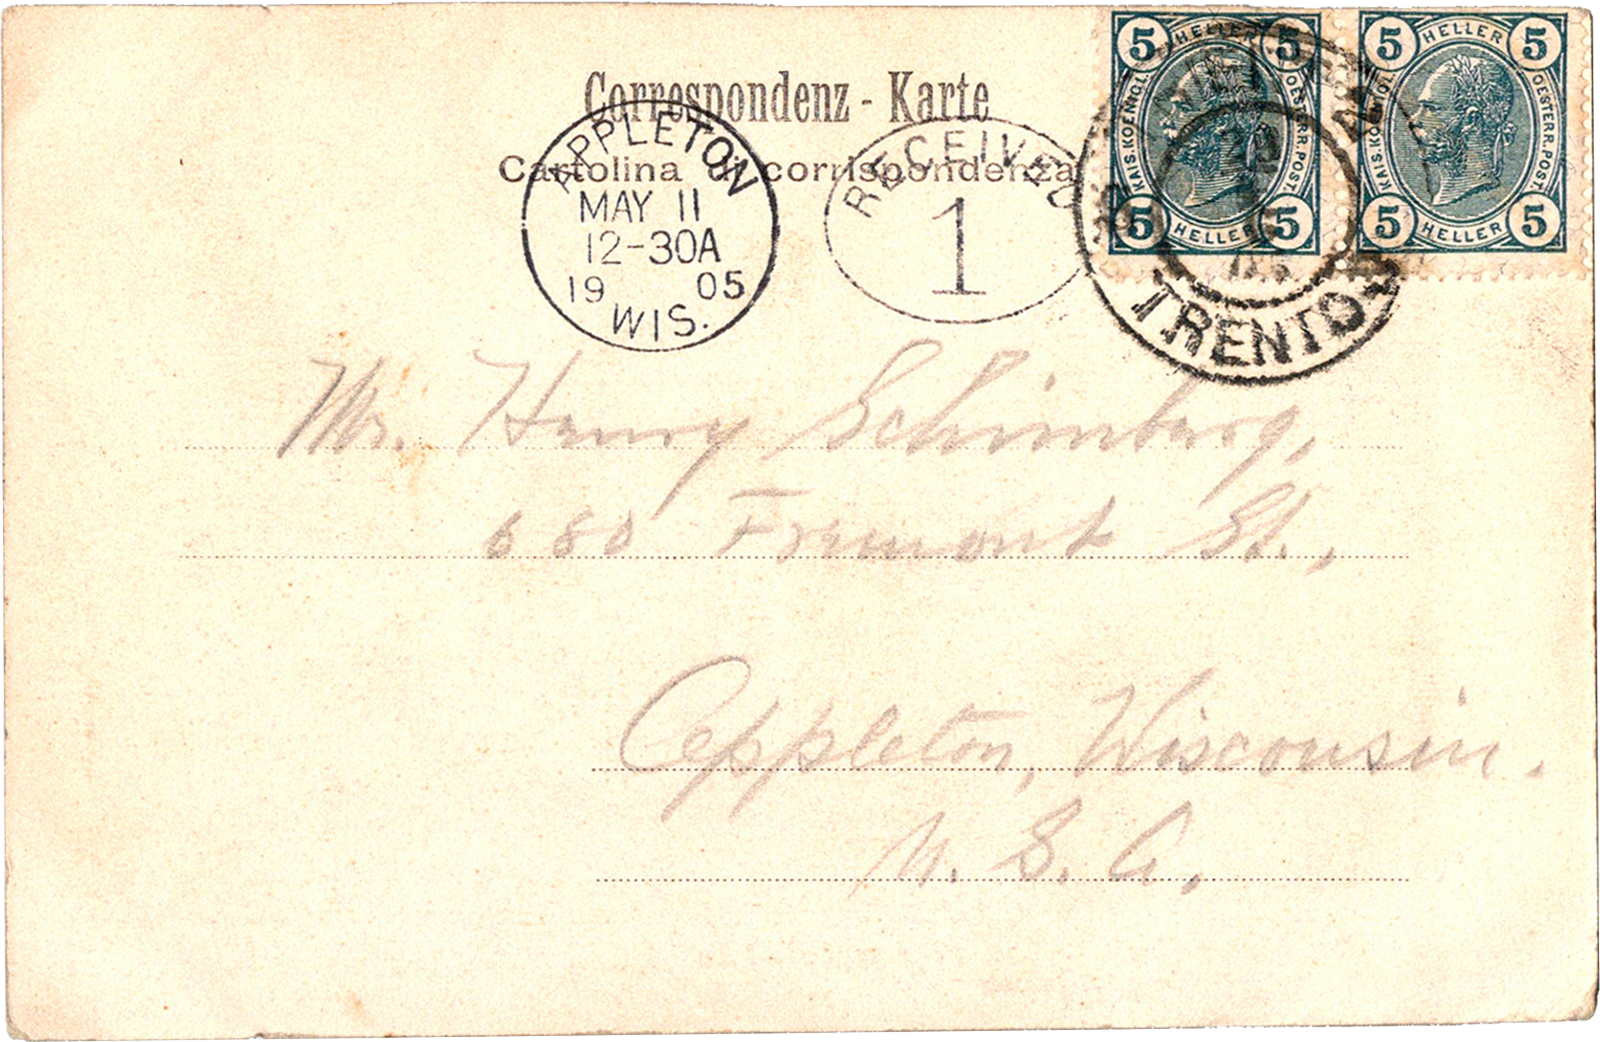 Correspondenz - Karte
Cartolina di corrispondenza
APPLETON
MAY 11
12-30A
19 05
WIS.
RECEIVED
1
TRENTO
5 HELLER 5
KAIS. KOENIGL. OESTERR. POST.
5 HELLER 5
5 HELLER 5
KAIS. KOENIGL. OESTERR. POST.
5 HELLER 5
Mr. Henry Schimberg,
680 Fremont St.,
Appleton, Wisconsin.
U. S. A.